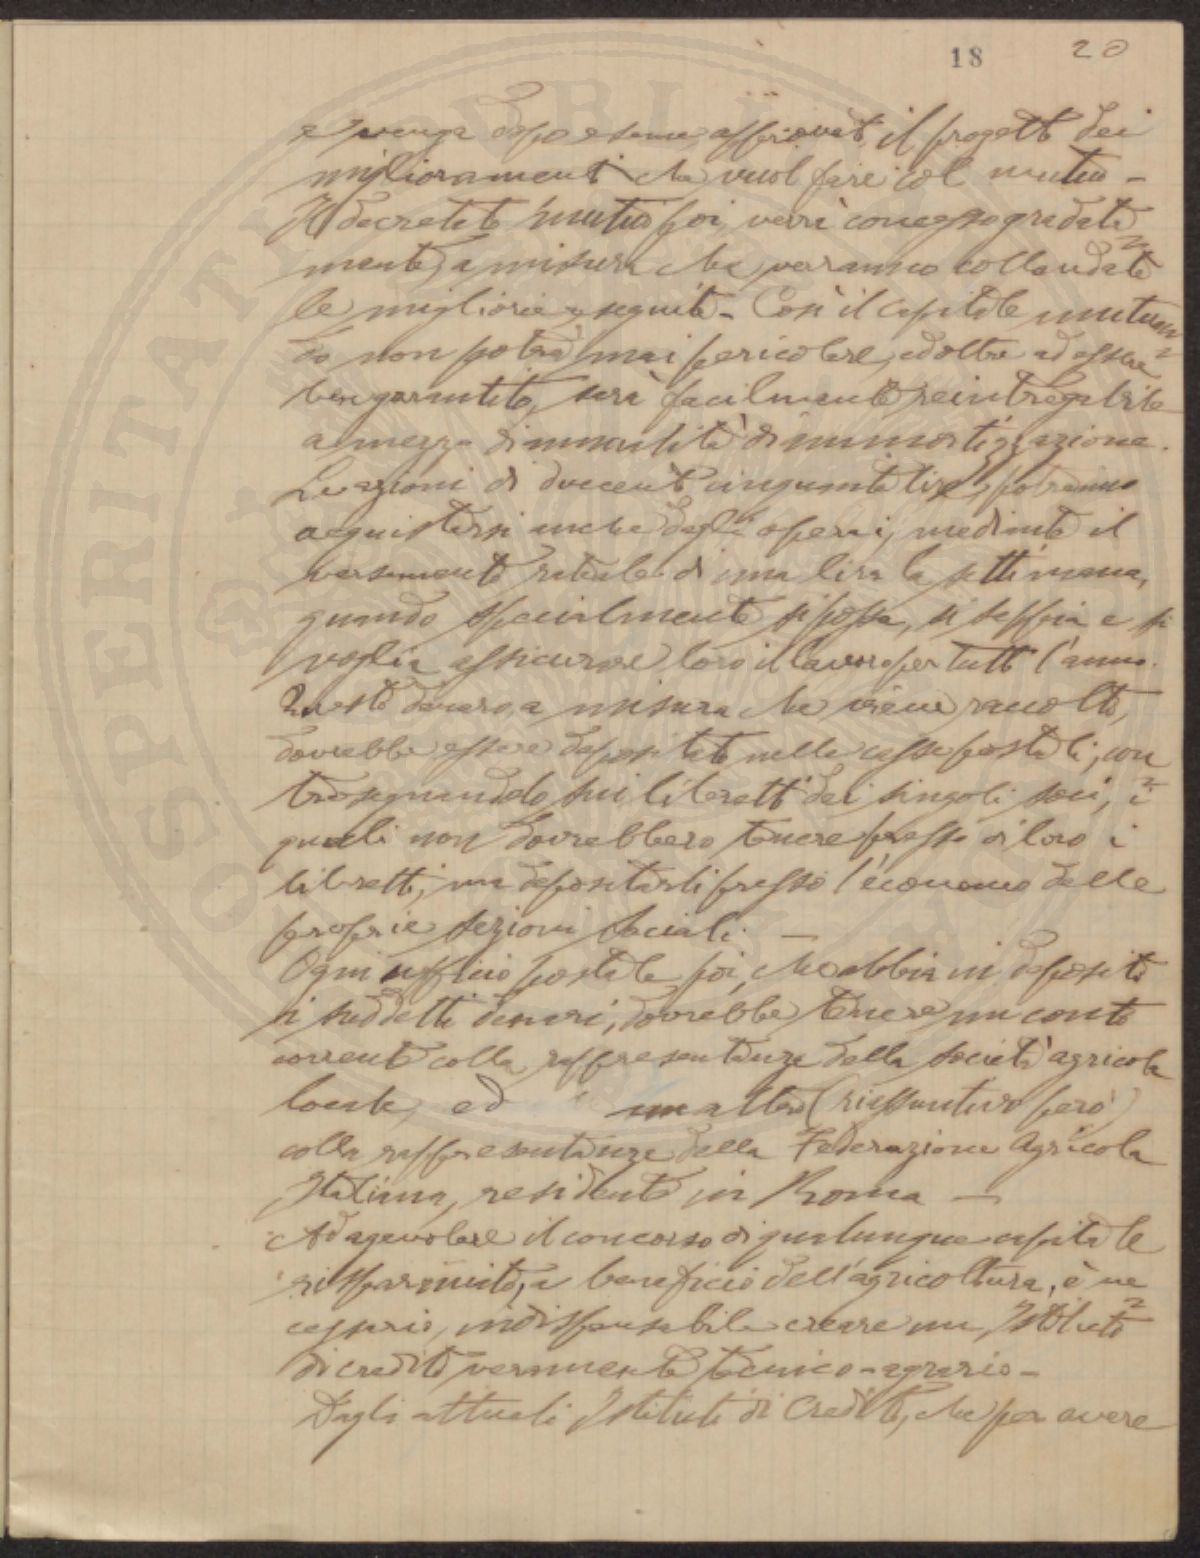 18 20
e venga dopo esame approvato il progetto dei
miglioramenti che vuol fare col mutuo -
Il decretato mutuo poi, verrà concesso gradata
mente, a misura che verranno collaudate
le migliorie eseguite - Così il capitale mutuan
do non potrà mai pericolare, ed oltre ad essere
ben garantito, sarà facilmente reintegrabile
a mezzo di annualità di ammortizzazione.
Le azioni di duecento cinquanta lire, potranno
acquistarsi anche dagli operai, mediante il
versamento rateale di una lira la settimana,
quando specialmente si possa, si sappia e si
voglia assicurare loro il lavoro per tutto l'anno.
Questo denaro, a misura che viene raccolto,
dovrebbe essere depositato nelle casse postali, con
trosegnandolo sui libretti dei singoli soci, i
quali non dovrebbero tenere presso di loro i
libretti, ma depositarli presso l'economo delle
proprie sezioni sociali. -
Ogni ufficio postale, poi, che abbia in deposito
i suddetti denari, dovrebbe tenere un conto
corrente colla rappresentanza della società agricola
locale, ed un altro (riassuntivo però)
colla rappresentanza della Federazione Agricola
Italiana, residente in Roma -
Ad agevolare il concorso di qualunque capitale
risparmiato, a beneficio dell'agricoltura, è ne
cessario, indispensabile creare un Istituto
di credito veramente tecnico-agrario -
Dagli attuali Istituti di Credito, che per avere
PROSPERITATI